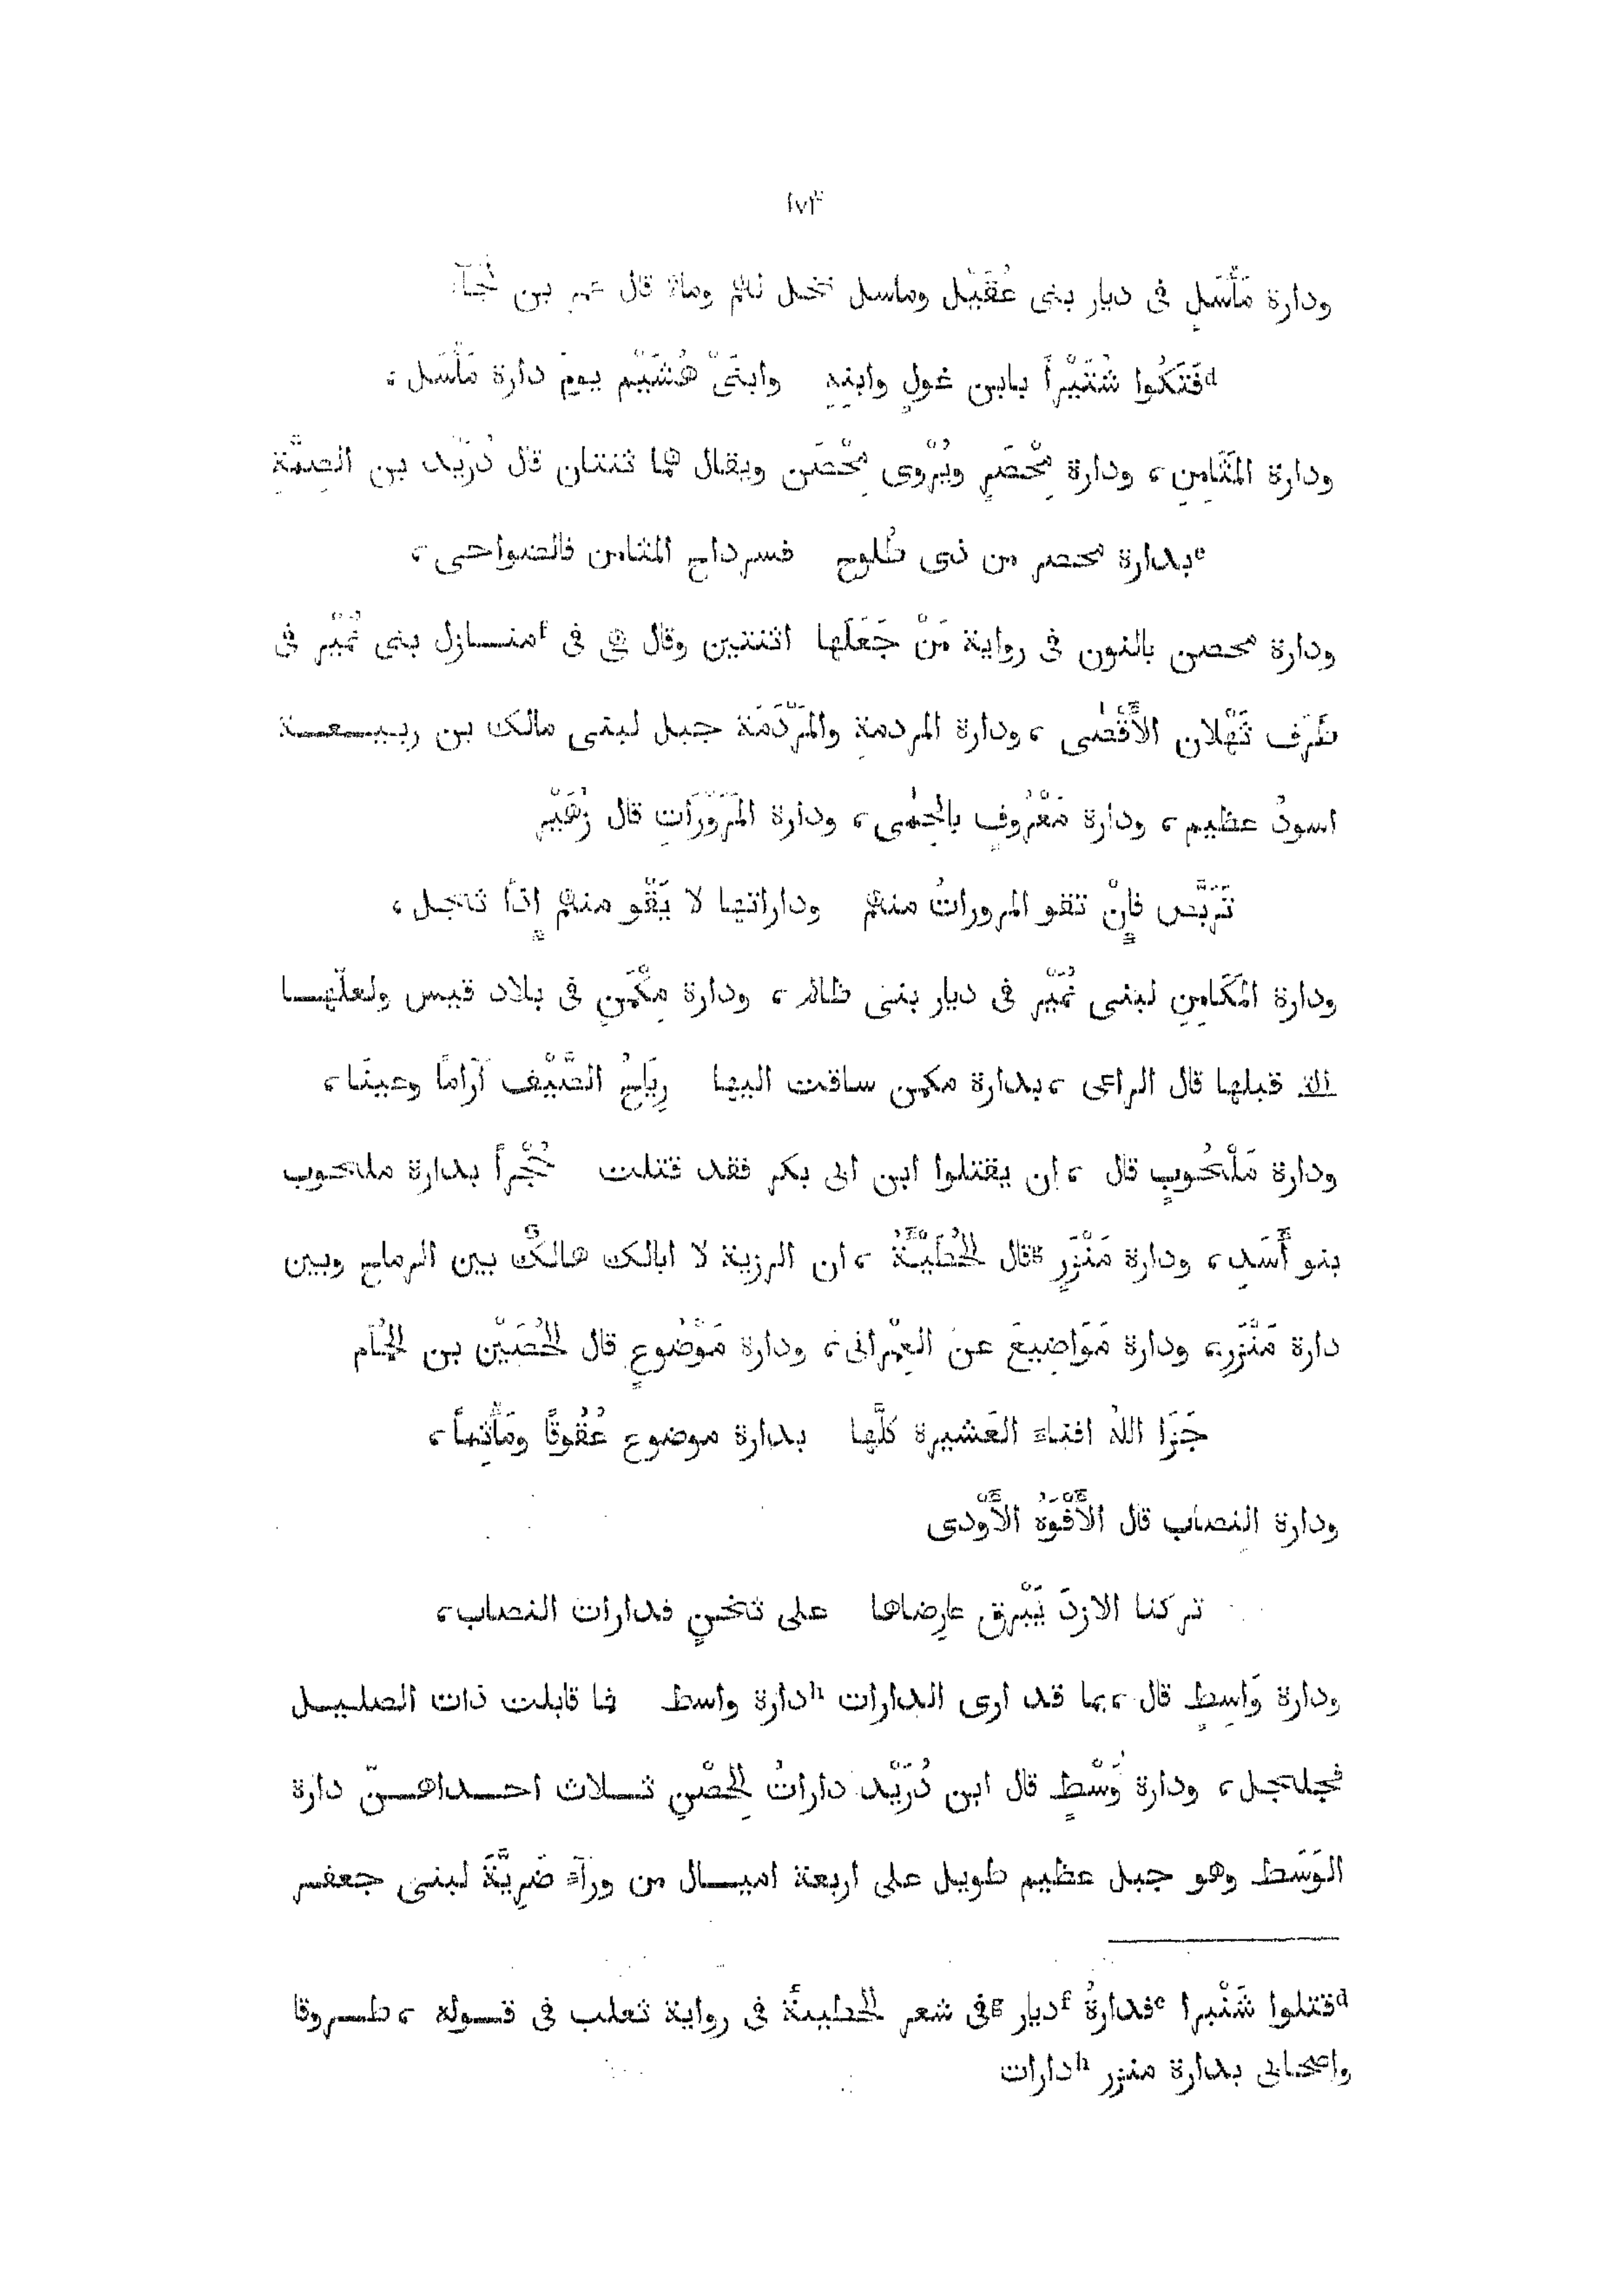 ١٧٣
ودارة مَأْسَلٍ فى ديار بنى عُقَيْل وماسل نخل لهم وماءة قال عمر بن لَجَأ
dفَتَكُوا شُتَيْرًا بابن غولٍ وابنِهِ وابنَىْ هُشَيْمٍ يومَ دارة مَأْسَل،
ودارة المَثَامِنِ، ودارة مِحْصَرٍ ويُرْوى مِحْصَن ويقال هما ثنتان قال دُرَيْد بن الصِمَّةِ
eبدارة محصر من ذى طُلوح فسرداح المثامن فالضواحى،
ودارة محصن بالنون فى رواية مَنْ جَعَلَها اثنتين وقال هى فى fمنازل بنى نُمَيْر فى
طَرَف ثَهْلان الأَقْصٰى، ودارة المردمةِ والمَرْدَمَة جبل لبنى مالك بن ربيعة
اسودُ عظيم، ودارة مَعْرُوفٍ بالحِمٰى، ودارة المَرَوْرَاتِ قال زُهَيْر
تَرَبَّص فإِنْ تقو المروراتُ منهم وداراتها لا يَقْو منهم إِذًا نخل،
ودارة المَكَامِنِ لبنى نُمَيْر فى ديار بنى ظالم، ودارة مِكْمَنٍ فى بلاد قيس ولعلّها
الت قبلها قال الراعى، بدارة مكمن ساقت اليها رِيَاحُ الصَّيْف آرَامًا وعينَا،
ودارة مَلْحُوبٍ قال، ان يقتلوا ابن ابى بكر فقد قتلت حُجْرًا بدارة ملحوب
بنو أَسَدِ، ودارة مَنْزَرٍ gقال الحُطَيْئَةُ، ان الرزية لا ابالك هالكٌ بين الرماح وبين
دارة مَنْزَرِ، ودارة مَوَاضِيعَ عن العِمْرانى، ودارة مَوْضُوعٍ قال الحُصَيْن بن الحُمَام
جَزَا اللهُ افناءَ العَشيرة كلَّها بدارة موضوع عُقُوقًا ومَأْثِمًا،
ودارة النِصاب قال الأَفْوَهُ الأَوْدى
تركنا الازدَ يَبْرق عارِضاها على ثجرٍ فدارات النصاب،
ودارة وَاسِطٍ قال، بما قد ارى الدارات hدارة واسط فما قابلت ذات الصليل
فجلجل، ودارة وَسْطٍ قال ابن دُرَيْد داراتُ الحِصْنِ ثلاث احداهنّ دارة
الوَسَط وهو جبل عظيم طويل على اربعة اميال من ورآءَ ضَرِيَّةَ لبنى جعفر
dقتلوا شَتْبرا eفدارةُ fديار gفى شعر الحطيئة فى رواية ثعلب فى قوله، طروقا
واصحابى بدارة منزر hدارات